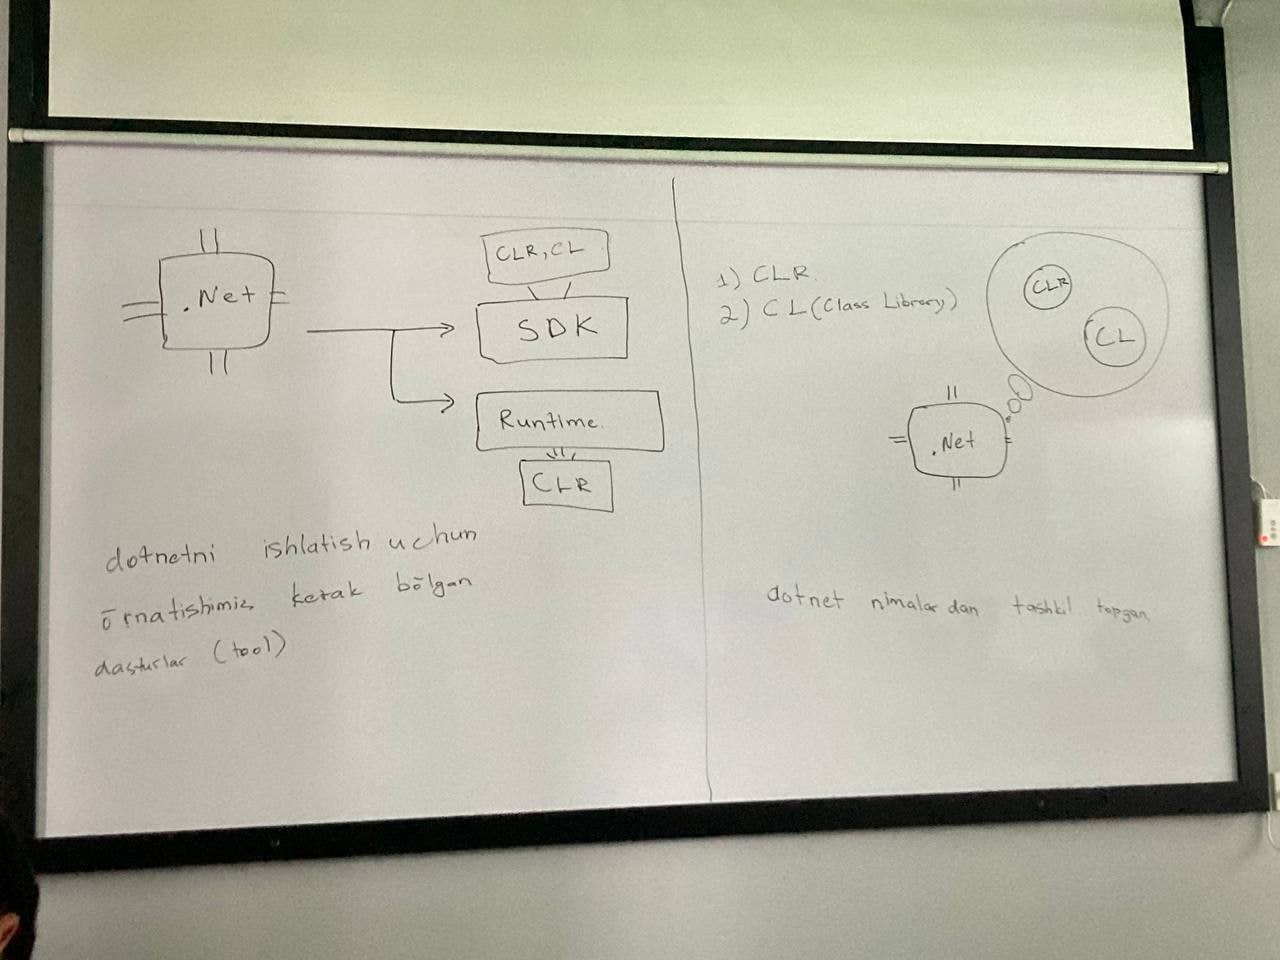 .Net
CLR, CL
SDK
Runtime.
CLR
dotnetni ishlatish uchun
ōrnatishimiz kerak bōlgan
dasturlar (tool)
1) CLR
2) CL (Class Library)
CLR
CL
.Net
dotnet nimalardan tashkil topgan